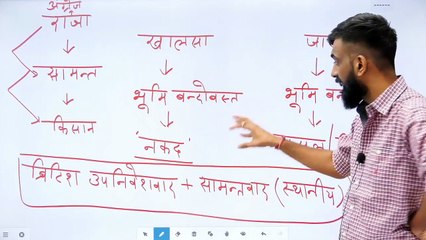 अंग्रेज
राजा
सामन्त
किसान
खालसा
भूमि बन्दोबस्त
'नकद'
जा
भूमि बन्द
ब्रिटिश उपनिवेशवाद + सामन्तवाद (स्थानीय)